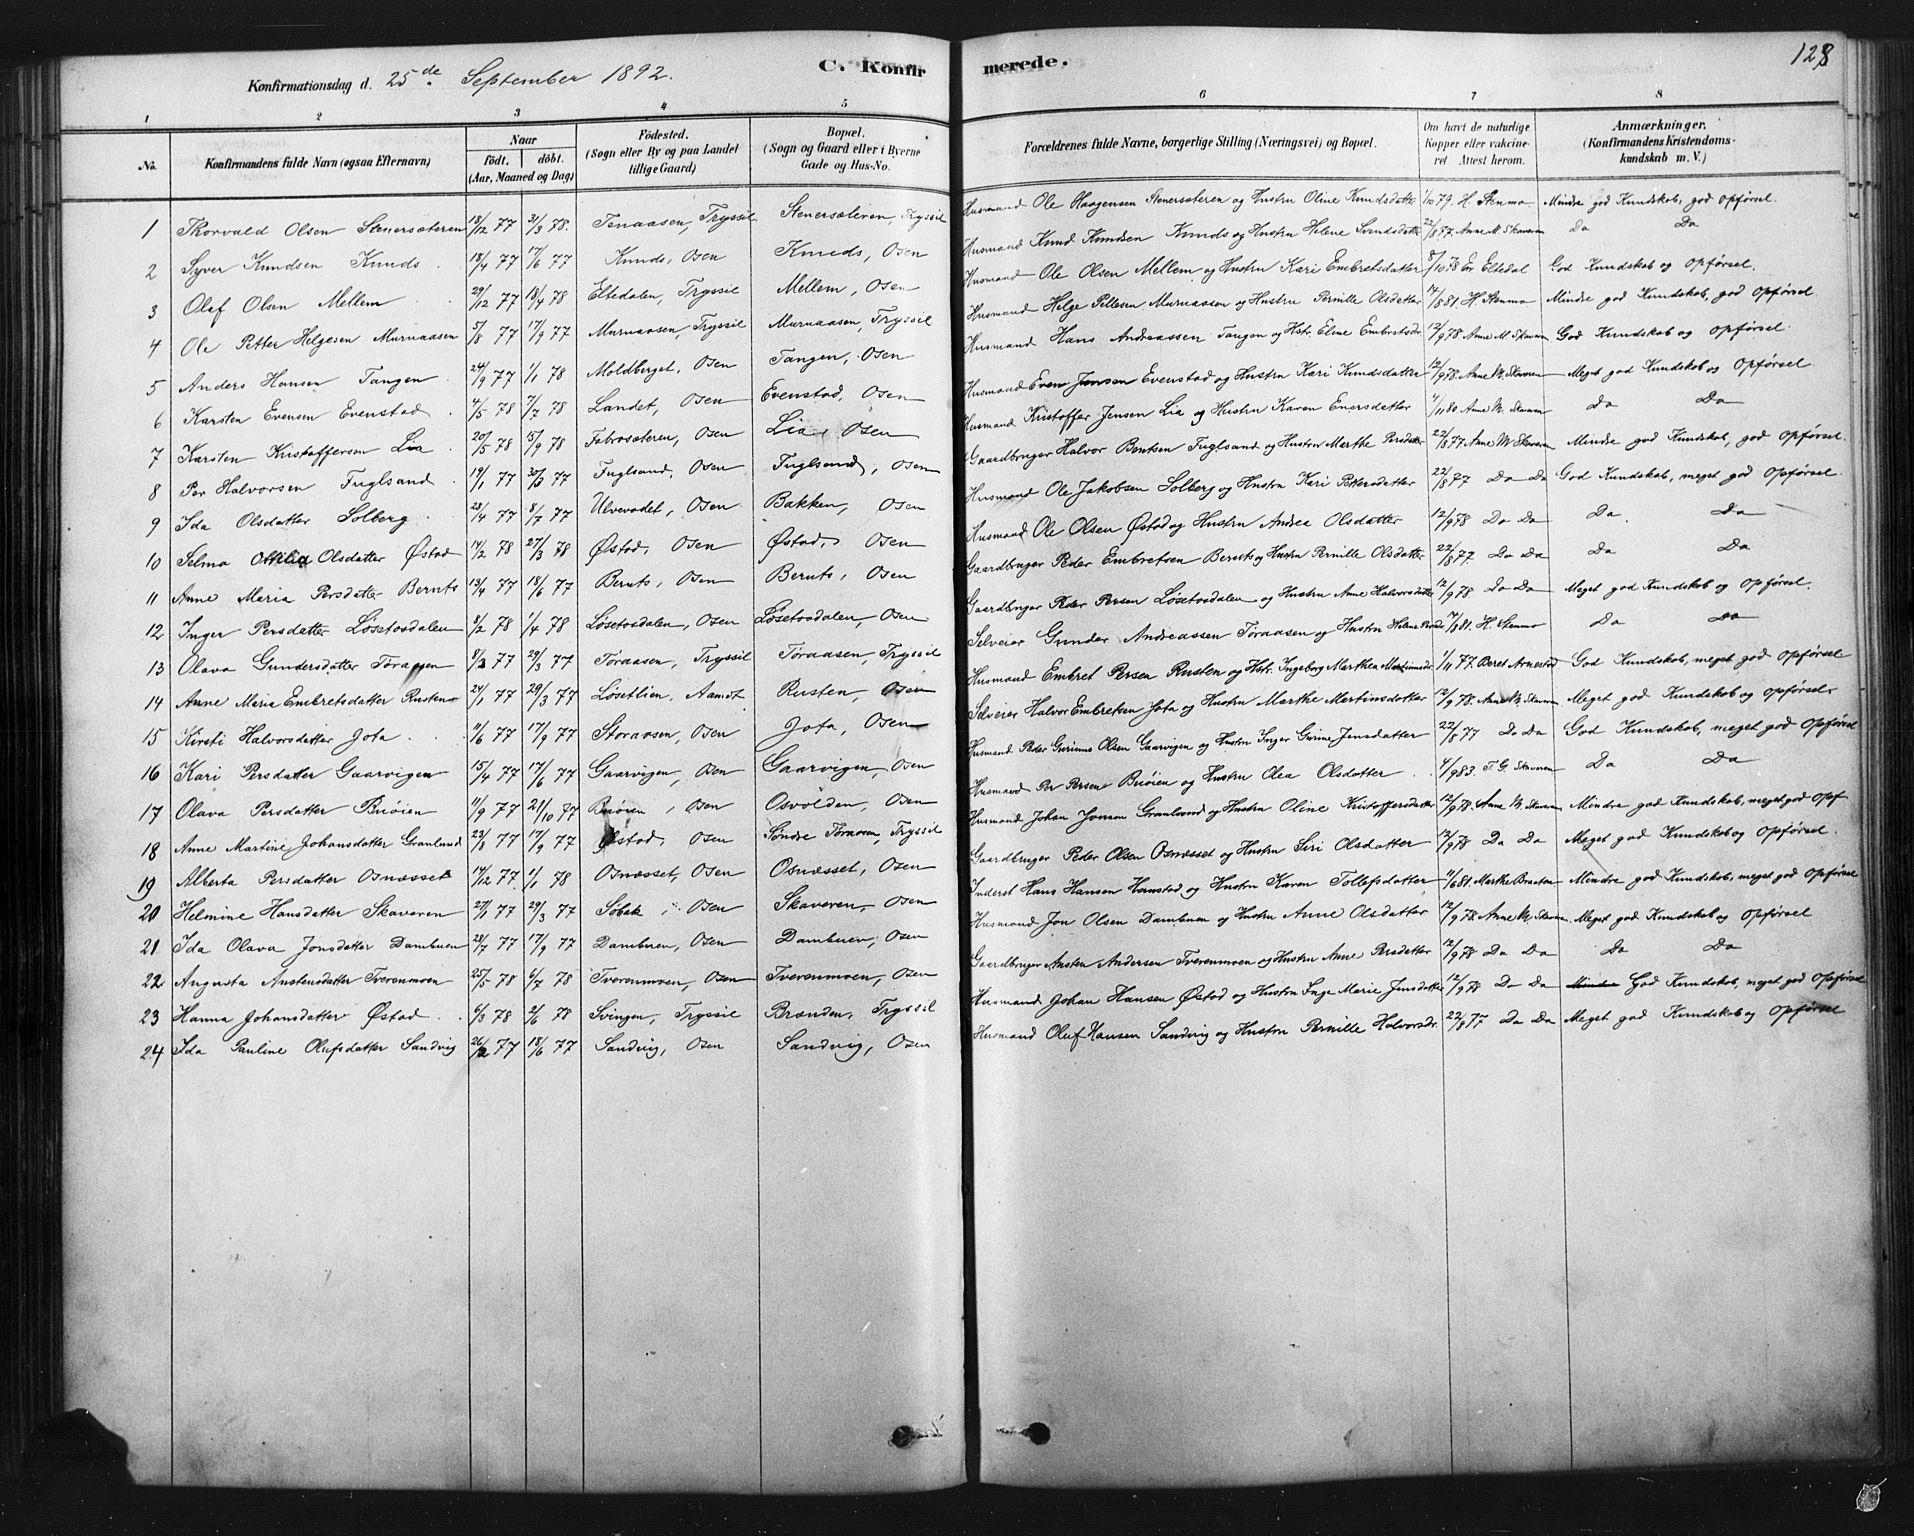 128
Konfirmationsdag d. 25de September 1892.
C. Konfirmerede.
1 2 3 4 5 6 7 8
No. Konfirmandens fulde Navn (ogsaa Efternavn) Naar født, døbt. (Aar, Maaned og Dag) Fødested. (Sogn eller By og paa Landet tillige Gaard) Bopæl. (Sogn og Gaard eller i Byerne Gade og Hus-No. Forældrenes fulde Navne, borgerlige Stilling (Næringsvei) og Bopæl. Om havt de naturlige Kopper eller vakcineret Attest herom. Anmærkninger. (Konfirmandens Kristendomskundskab m. V.)
1 Thorvald Olsen Stenersæteren 18/12 77 31/3 78. Tenaasen, Tryssil Stenersæteren, Tryssil Husmand Ole Haagensen Stenersæteren og Hustru Oline Knudsdatter 1/10 79. H. Stenmo Mindre god Kundskab, god opførsel.
2 Syver Knudsen Knuds 18/4 77 17/6 77 Knuds, Osen Knuds, Osen Husmand Knud Knudsen Knuds og Hustru Helene Svendsdatter 22/8 87. Anne M. Skaveren Do Do
3 Olaf Olsen Mellem 29/12 77 18/4 78 Eltedalen, Tryssil Mellem, Osen Husmand Ole Olsen Mellem og Hustru Kari Embretsdatter 8/10 78 Er. Eltedal God Kundskab og opførsel.
4 Ole Petter Helgesen Murnaasen 5/8 77 17/9 77 Murnaasen, Tryssil Murnaasen, Tryssil Husmand Helge Pellesen Murnaasen og Hustru Pernille Olsdatter 17/8 81. H. Stenmo Mindre god Kundskab, god opførsel.
5 Anders Hansen Tangen 24/9 77 1/1 78 Moldberget, Osen Tangen, Osen Husmand Hans Andreassen Tangen og Hstr. Eline Embretsdr. 12/9 78 Anne M. Skaveren God Kundskab og opførsel.
6 Karsten Evensen Evenstad 4/5 78 7/7 78 Landet, Osen Evenstad, Osen Husmand Even Jensen Evenstad og Hustru Kari Knudsdatter 12/9 78. Anne M. Skaveren Meget god Kundskab og opførsel
7 Karsten Kristoffersen Lia 20/5 78 15/9 78 Fabrosæteren, Osen Lia, Osen Husmand Kristoffer Jensen Lia og Hustru Karen Enersdatter 4/11 80 Anne M. Skaveren Do Do
8 Per Halvorsen Fuglsand 19/1 77 30/3 77 Fuglsand, Osen Fuglsand, Osen Gaardbruger Halvor Bentsen Fuglsand og Hustru Marthe Persdatter 22/8 77 Anne M. Skaveren Mindre god Kundskab, god opførsel.
9 Ida Olsdatter Solberg 23/4 77 8/7 77 Ulvevodet, Osen Bakken, Osen Husmand Ole Jakobsen Solberg og Hustru Kari Pettersdatter 22/8 77 Do Do God Kundskab, meget god opførsel.
10 Selma Otilia Olsdatter Østad 14/2 78 27/3 78 Østad, Osen Østad, Osen Husmand Ole Olsen Østad og Hustru Andrea Olsdatter 12/9 78 Do Do Do. Do
11 Anne Maria Persdatter Bernts 13/4 77 18/6 77 Bernts, Osen Bernts, Osen Gaardbruger Peder Embretsen Bernts og Hustru Pernille Olsdatter 22/8 77. Do Do Do Do
12 Inger Persdatter Løsetosdalen 8/2 78 1/4 78 Løsetosdalen, Osen Løsetosdalen, Osen Gaardbruger Peder Persen Løsetosdalen og Hustru Anne Halvorsdatter 12/9 78 Do Do Meget god Kundskab og opførsel.
13 Olava Gundersdatter Tøraasen 8/3 77 29/3 77 Tøraasen, Tryssil Tøraasen, Tryssil Selveier Gunder Andreassen Tøraasen og Hustru Helene 7/8 81. H. Stenmo Do Do
14 Anne Maria Embretsdatter Rusten 24/1 77 29/3 77 Løsetlien, Aamot Rusten, Osen Husmand Embret Persen Rusten og Hstr. Ingeborg Marthea Martinusdr. 1/11 77. Beret Arnestad God Kundskab, meget god opførsel
15 Kirsti Halvorsdatter Jota 11/6 77 17/9 77 Storaasen, Osen Jota, Osen Selveier Halvor Embretsen Jota og Hustru Marthe Martinsdatter 12/9 78. Anne M. Skaveren Meget god Kundskab og opførsel
16 Kari Persdatter Gaarvigen 15/4 77 17/6 77 Gaarvigen, Osen Gaarvigen, Osen Husmand Peder Gurinus Olsen Gaarvigen og Hustru Inger Gurine Jensdatter 22/8 77 Do Do God Kundskab, meget god opførsel
17 Olava Persdatter Bruøien 11/9 77 21/10 77 Bruøien, Osen Osvolden, Osen Husmand Per Persen Bruøien og Hustru Olea Olsdatter 4/9 83. T. G. Skaveren Do Do
18 Anne Martine Johansdatter Granlund 23/8 77 17/9 77 Østad, Osen Søndre Tøraasen, Tryssil Husmand Johan Jonsen Granlund og Hustru Oline Kristoffersdatter 12/9 78. Anne M. Skaveren Mindre god Kundskab, meget god opf
19 Alberta Persdatter Osnæsset 14/12 77. 1/1 78 Osnæsset, Osen Osnæsset, Osen Gaardbruger Peder Olsen Osnæsset og Hustru Siri Olsdatter 12/9 78 Do Do Meget god Kundskab og opførsel.
20 Helmine Hansdatter Skaveren 27/1 77 29/3 77 Søbak, Osen Skaveren, Osen Inderst Hans Hansen Hanstad og Hustru Karen Tollefsdatter 11/6 81. Marthe Braaten Mindre god Kundskab, meget god opførsel
21 Ida Olava Jonsdatter Dambuen 28/7 77 17/9 77 Dambuen, Osen Dambuen, Osen Husmand Jon Olsen Dambuen og Hustru Anne Olsdatter 12/9 78. Anne M. Skaveren Meget god Kundskab og opførsel
22 Augusta Austensdatter Tverenmoen 25/5 78 6/7 78 Tverenmoen, Osen Tverenmoen, Osen Gaardbruger Austen Andersen Tverenmoen og Hustru Anne Persdatter 12/9 78 Do Do Do Do
23 Hanna Johansdatter Østad 6/3 78 2/6 78 Svingen, Tryssil Brænden, Tryssil Husmand Johan Hansen Østad og Hustru Inge Marie Jensdatter 12/9 78 Do Do Mindre God Kundskab, meget god opførsel
24 Ida Pauline Olufsdatter Sandvig 26/2 77 18/6 77 Sandvig, Osen Sandvig, Osen Husmand Oluf Hansen Sandvig og Hustru Pernille Halvorsdr. 22/8 77 Do Do Meget god Kundskab og opførsel